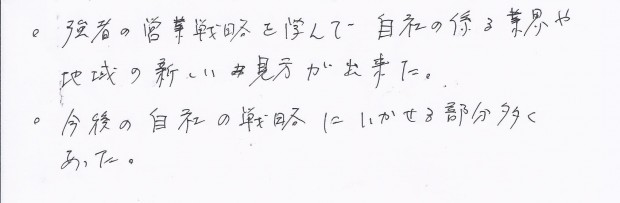 。強者の営業戦略を学んで自社の係る業界や
地域の新しい見方が出来た。
。今後の自社の戦略にいかせる部分多く
あった。